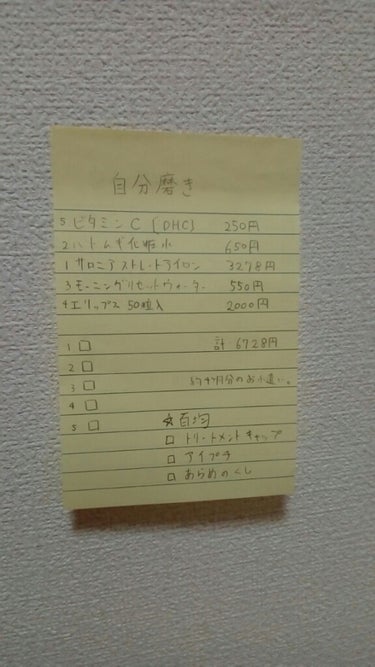 自分磨き
5 ビタミンC [DHC] 250円
2 ハトムギ化粧水 650円
1 サロニアストレートアイロン 3278円
3 モーニングリセットウォーター 550円
4 エリップス 50粒入 2000円
1 □ 計 6728円
2 □
3 □ 分のお小遣い。
4 □
5 □ ☆百均
□ トリートメントキャップ
□ アイプチ
□ あらめのくし